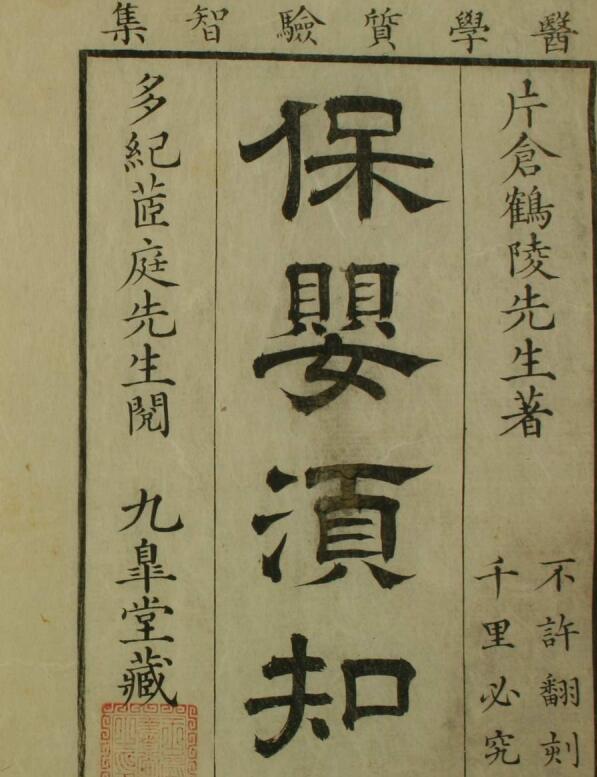 醫學質驗智集
片倉鶴陵先生著
不許翻刻
千里必究
保嬰須知
多紀茝庭先生閲
九皐堂藏